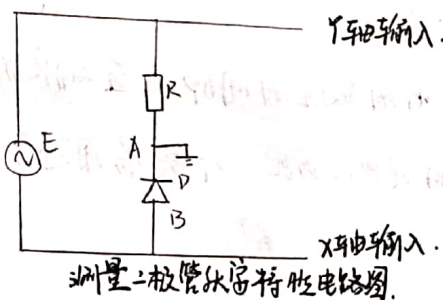 Y轴输入.
R
A
E
D
B
X轴输入.
测量二极管伏安特性电路图.